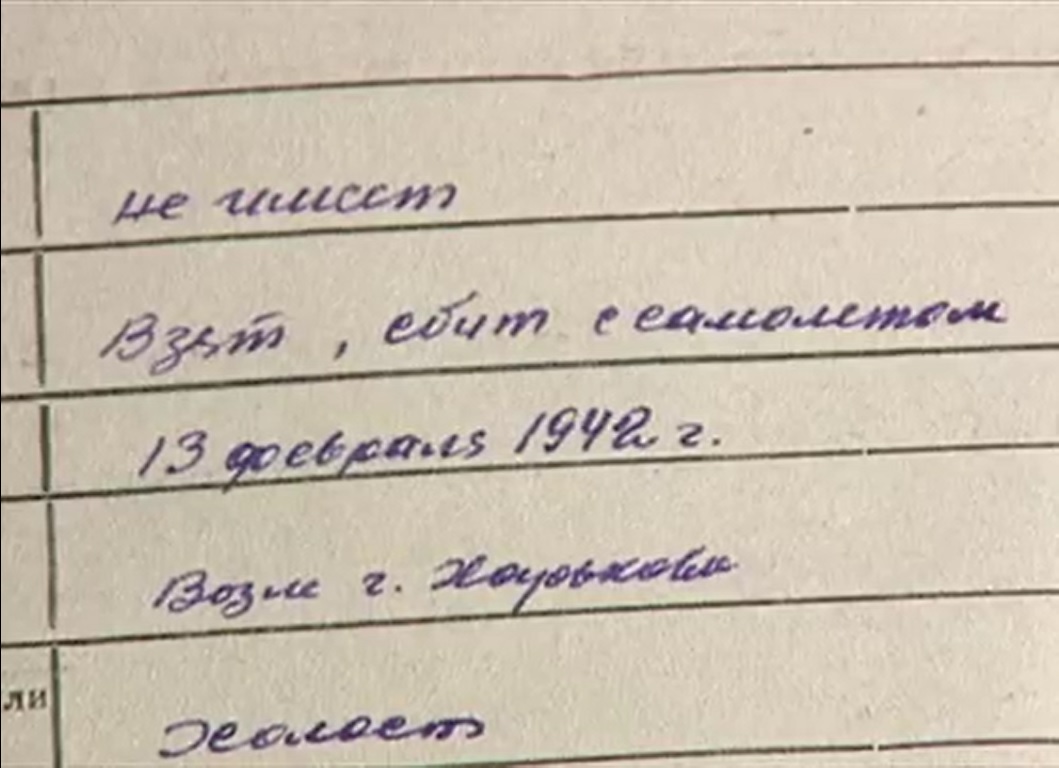 не имеет
Взят, сбит с самолетом
13 февраля 1942 г.
Возле г. Харькова
ли
Холост